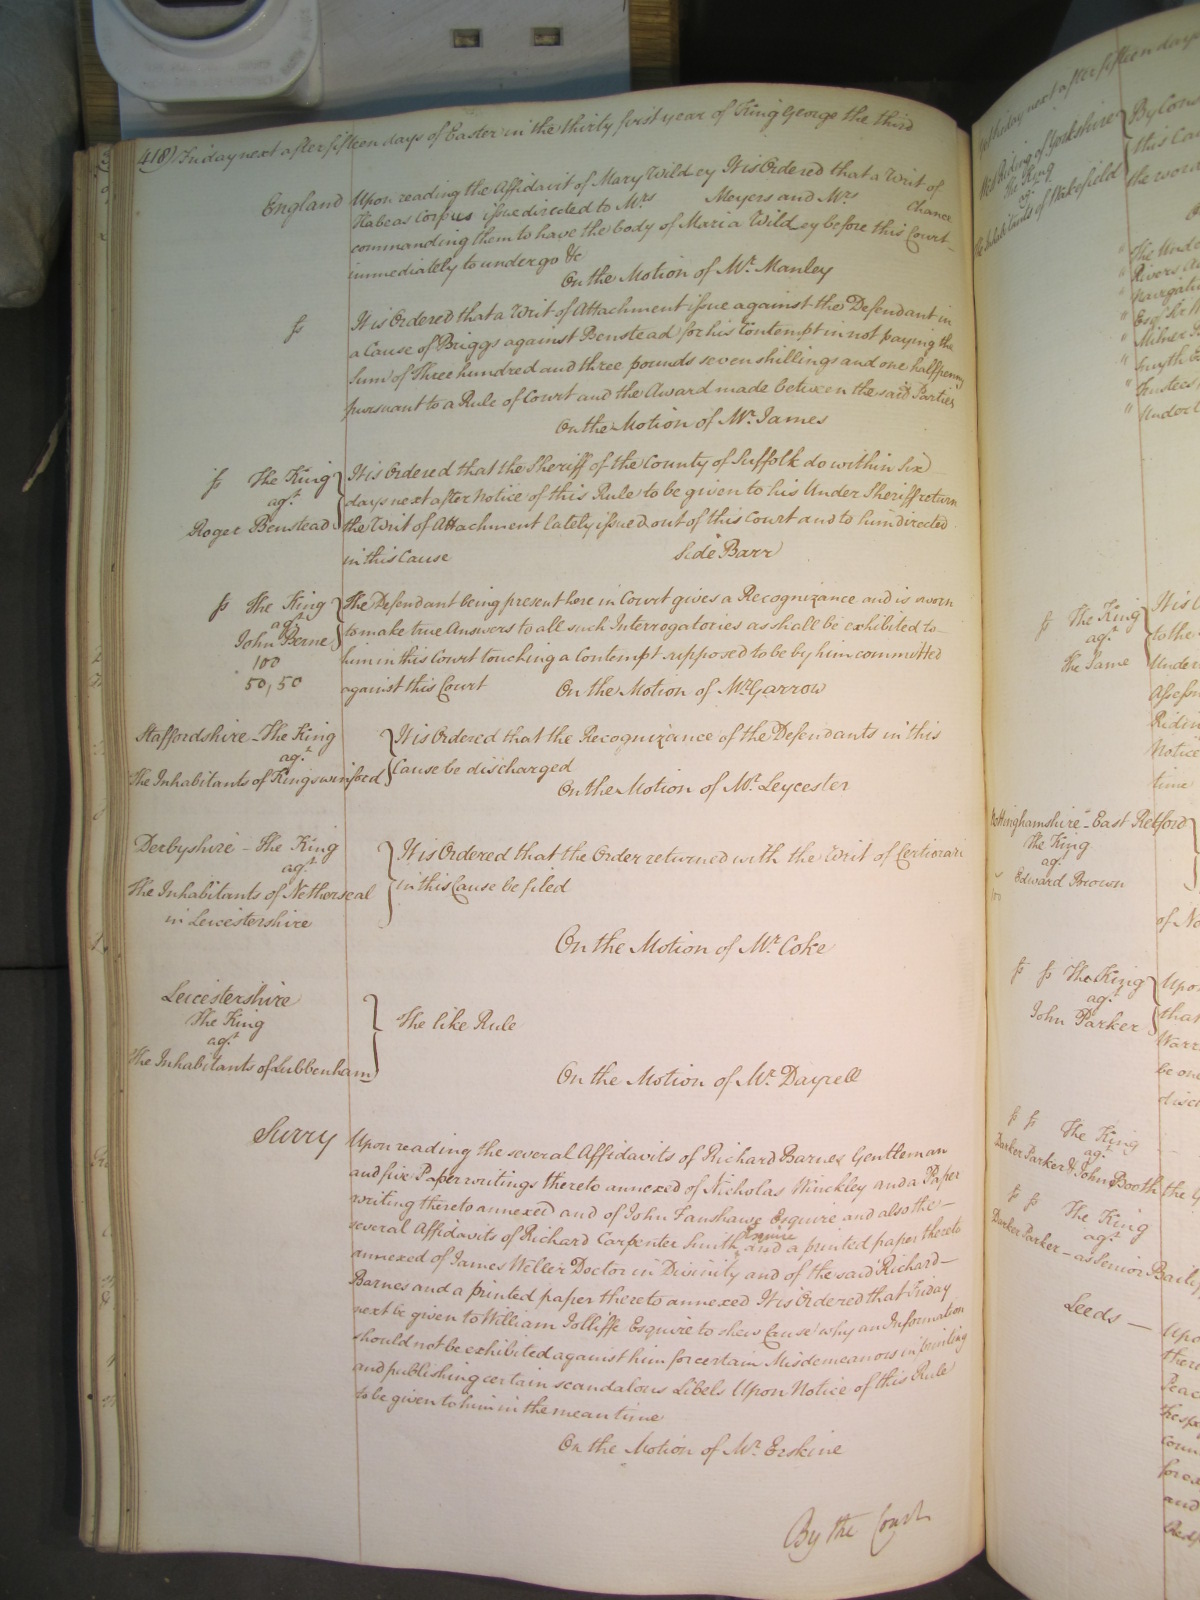 418) Friday next after fifteen days of Easter in the thirty first year of King George the third
England Upon reading the Affidavit of Mary Wildey It is Ordered that a Writ of
Habeas Corpus issue directed to Mrs Meyers and Mrs Chance
commanding them to have the body of Maria Wildey before this Court
immediately to undergo &c
On the Motion of Mr. Manley
fs It is Ordered that a Writ of Attachment issue against the Defendant in
a Cause of Briggs against Benstead for his Contempt in not paying the
Sum of Three hundred and three pounds seven shillings and one halfpenny
pursuant to a Rule of Court and the Award made between the said Parties
On the Motion of Mr. James
fs The King
agt.
Roger Benstead
It is Ordered that the Sheriff of the County of Suffolk do within Six
days next after Notice of this Rule to be given to his Under Sheriff return
the Writ of Attachment lately issued out of this Court and to him directed
in this Cause Side Barr
fs The King
agt.
John Berne
100
50, 50
The Defendant being present here in Court gives a Recognizance and is sworn
to make true Answers to all such Interrogatories as shall be exhibited to
him in this Court touching a Contempt supposed to be by him committed
against this Court On the Motion of Mr. Garrow
Staffordshire - The King
agt.
The Inhabitants of Kingswinford
It is Ordered that the Recognizance of the Defendants in this
Cause be discharged
On the Motion of Mr. Leycester
Derbyshire - The King
agt.
The Inhabitants of Netherseal
in Leicestershire
It is Ordered that the Order returned with the Writ of Certiorari
in this Cause be filed
On the Motion of Mr. Coke
Leicestershire
The King
agt.
The Inhabitants of Lubbenham
The like Rule
On the Motion of Mr. Dayrell
Surry Upon reading the several Affidavits of Richard Barnes Gentleman
and five Paper writings thereto annexed of Nicholas Winckley and a Paper
writing thereto annexed and of John Fanshawe Esquire and also the
several Affidavits of Richard Carpenter Smith Esquire and a printed paper thereto
annexed of James Weller Doctor in Divinity and of the said Richard
Barnes and a printed paper thereto annexed It is Ordered that Friday
next be given to William Jolliffe Esquire to shew Cause why an Information
should not be exhibited against him for certain Misdemeanors in printing
and publishing certain scandalous Libels Upon Notice of this Rule
to be given to him in the mean time
On the Motion of Mr. Erskine
By the Court
next after fifteen days
West Riding of Yorkshire
The King
agt.
Inhabitants of Wakefield
fs The King
agt.
The Same
Nottinghamshire - East Retford
The King
agt.
Edward Brown
fs fs The King
agt.
John Parker
fs fs The King
agt.
Darker Parker & John Booth
fs fs The King
agt.
Darker Parker - as Senior Bailiff
Leeds